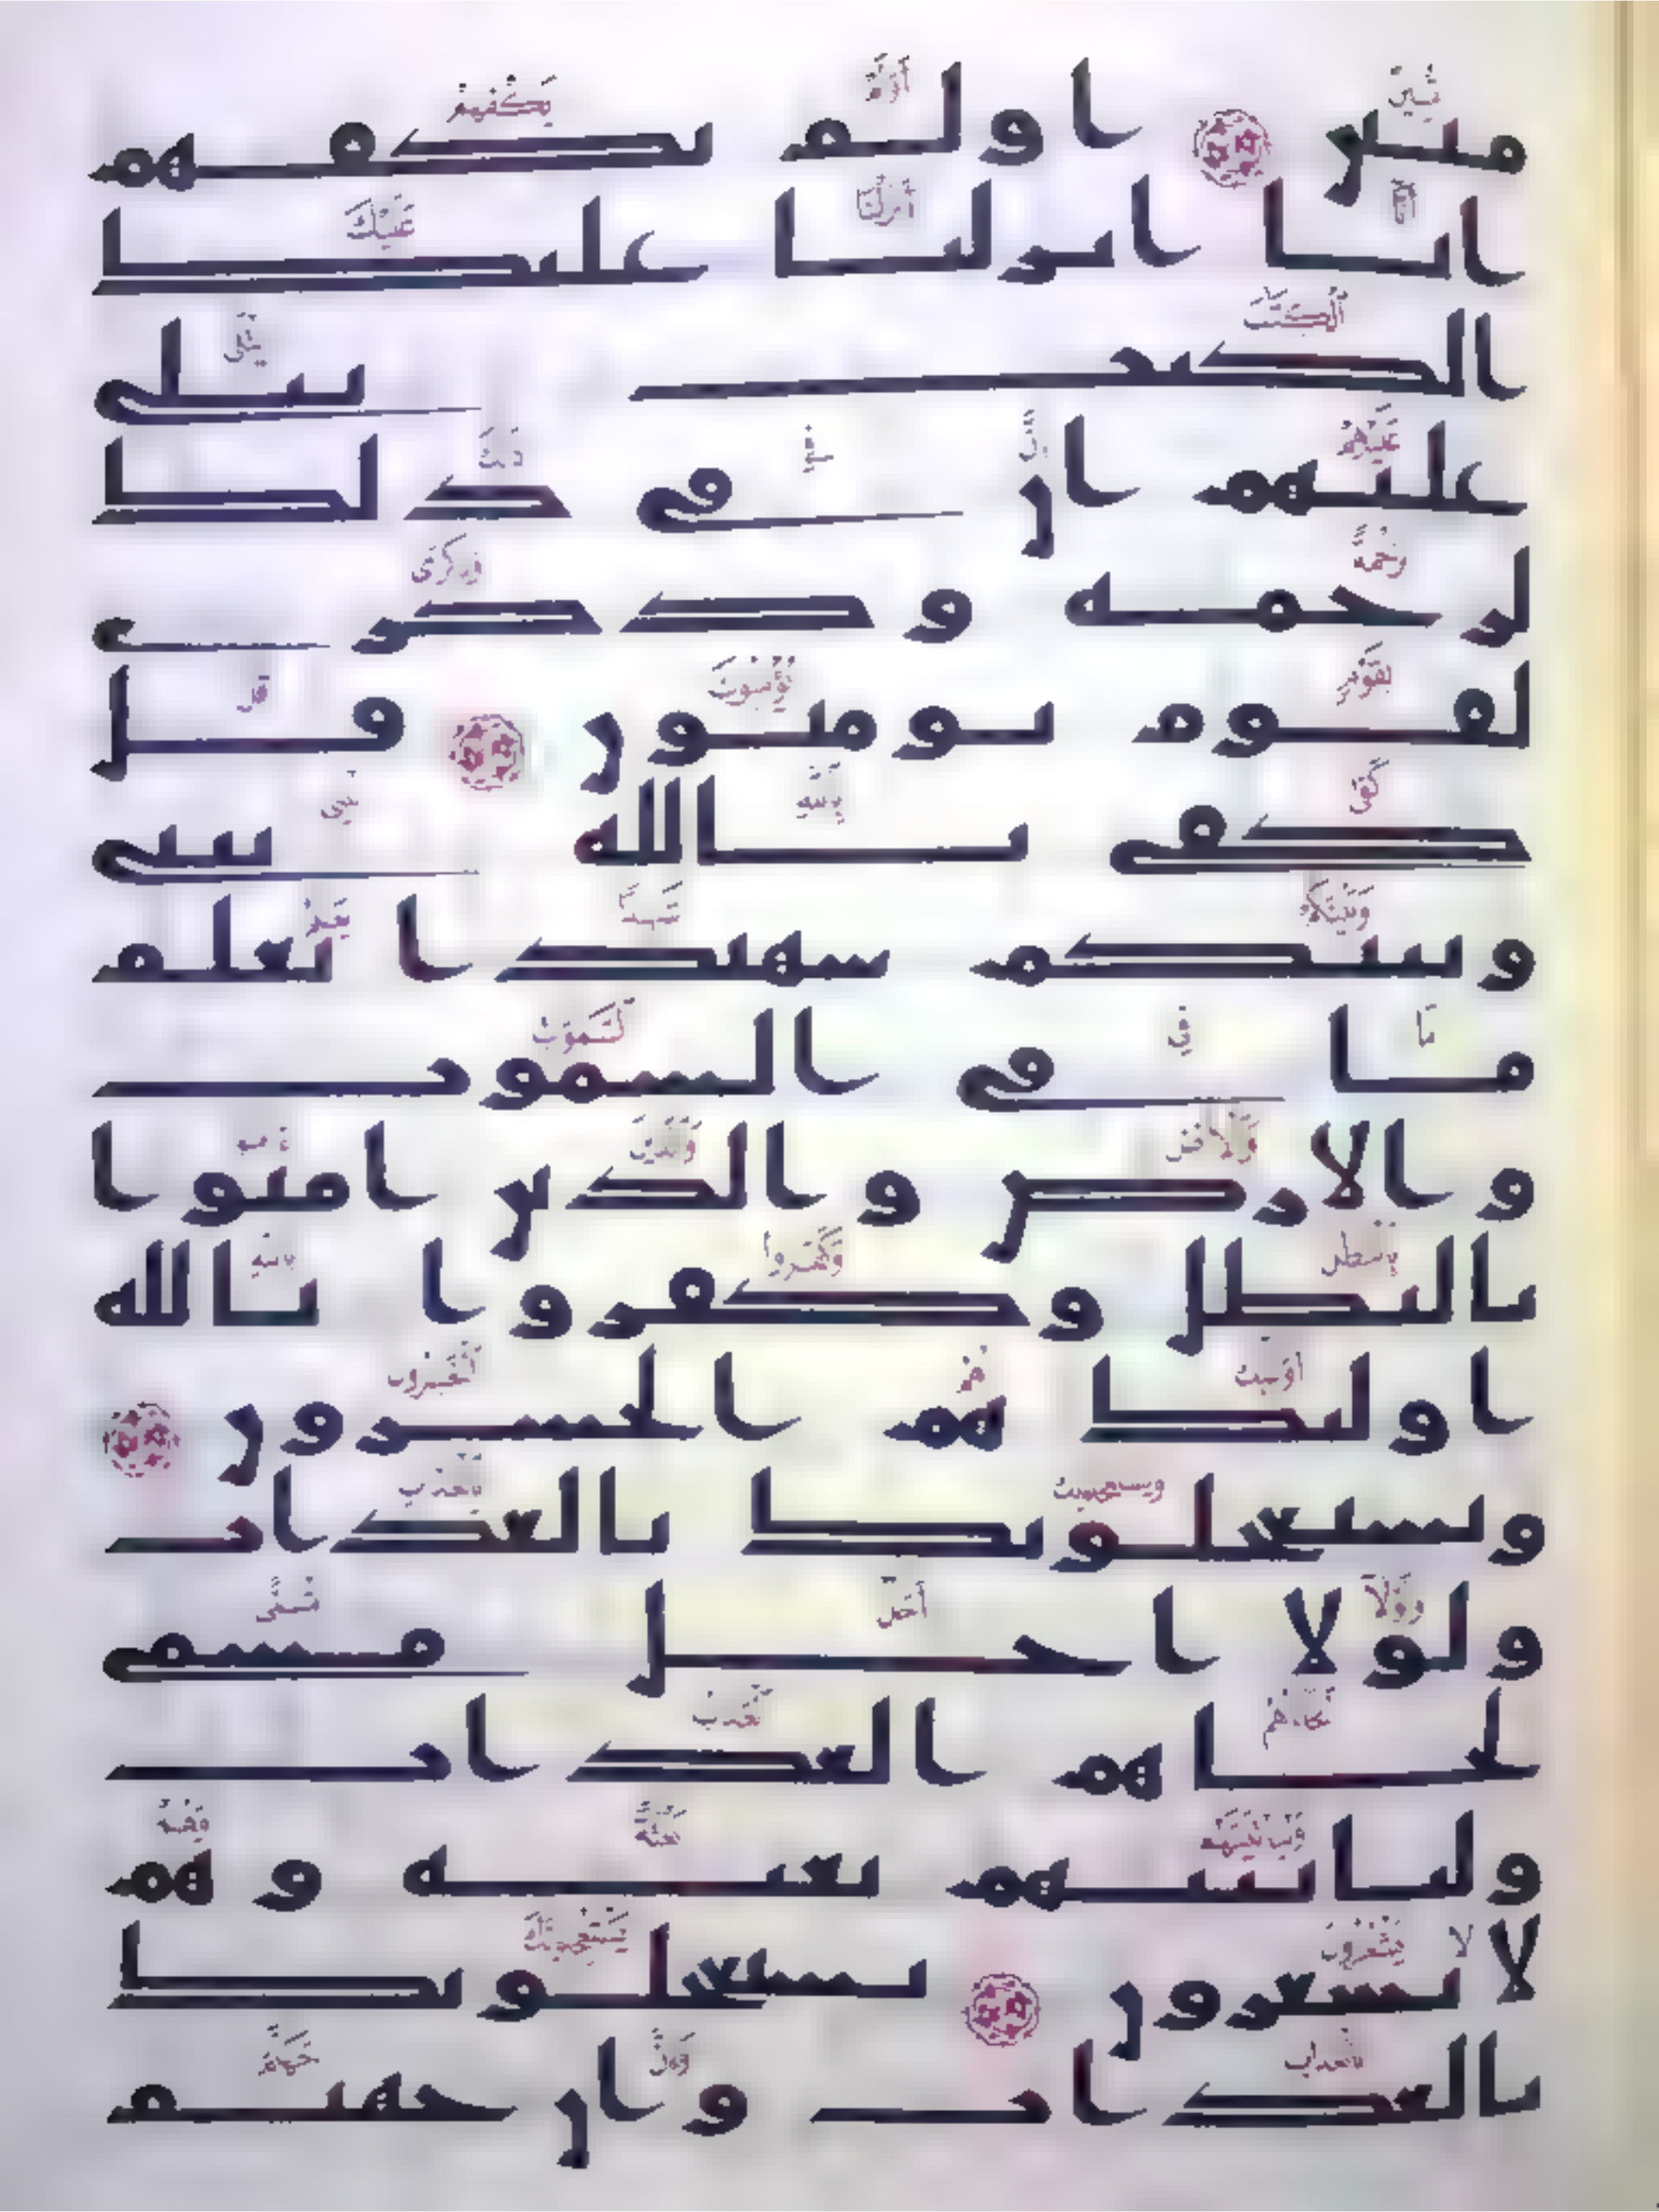 مبين اولم يكفهم
انا انزلنا عليك
الكتب يتلى
عليهم ان في ذلك
لرحمة وذكرى
لقوم يومنون قل
كفى بالله بيني
وبينكم شهيدا يعلم
ما في السموت
والارض والذين امنوا
بالبطل وكفروا بالله
اولئك هم الخسرون
ويستعجلونك بالعذاب
ولولا اجل مسمى
لجاهم العذاب
ولياتينهم بغتة وهم
لا يشعرون يستعجلونك
بالعذاب وان جهنم